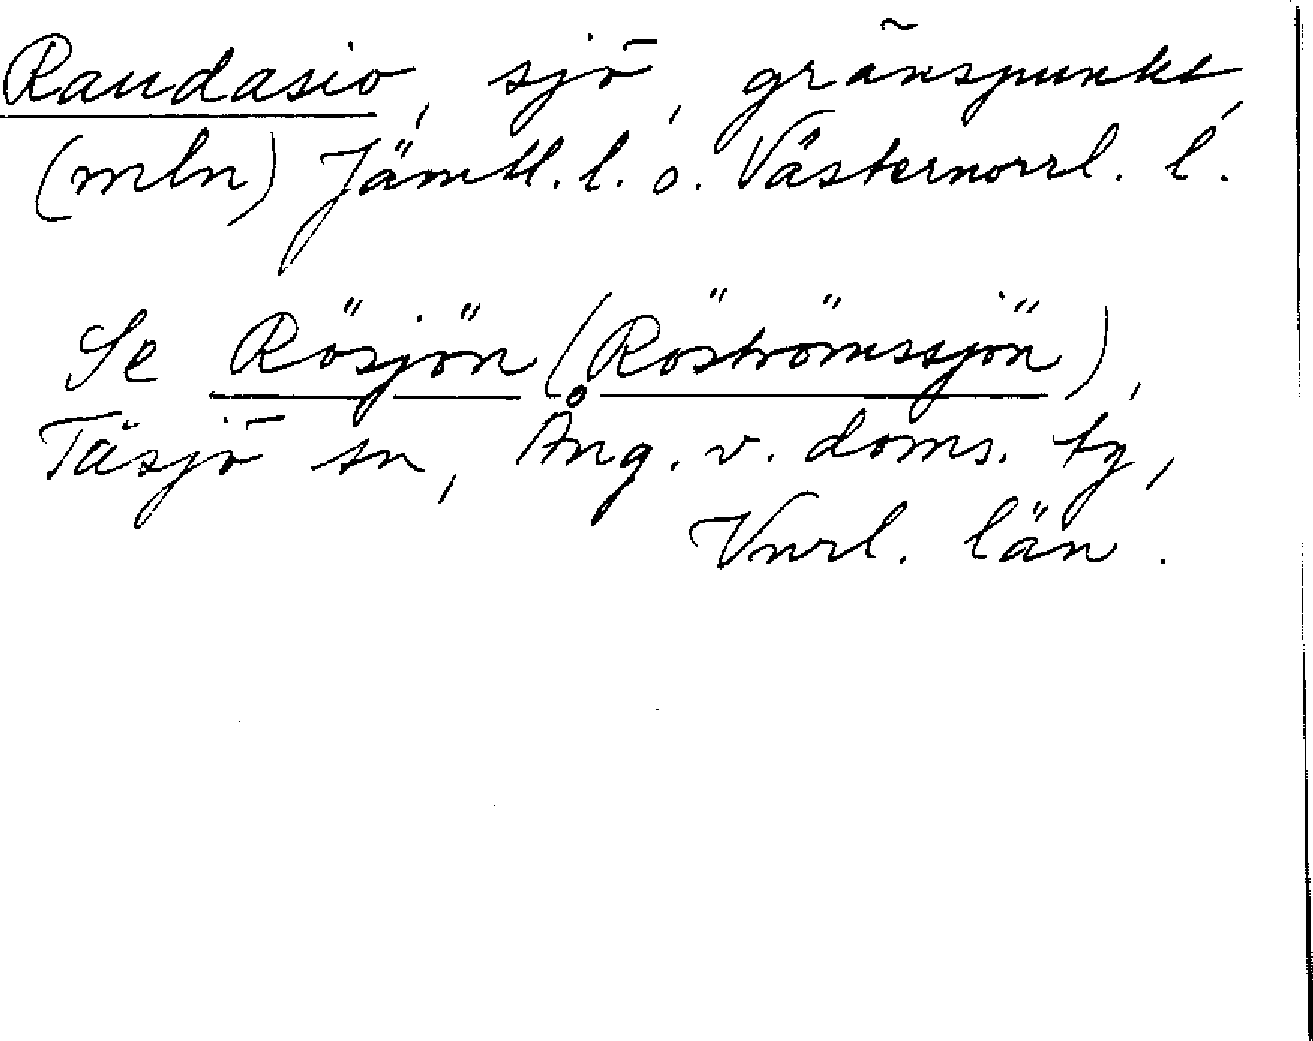 Raudasio, sjö, gränspunkt,
(mln) Jämtl. l. o. Västernorrl. l.
Se Rösjön (Röströmssjön),
Tåsjö sn, Ång. v. doms. tg,
Vnrl. län.